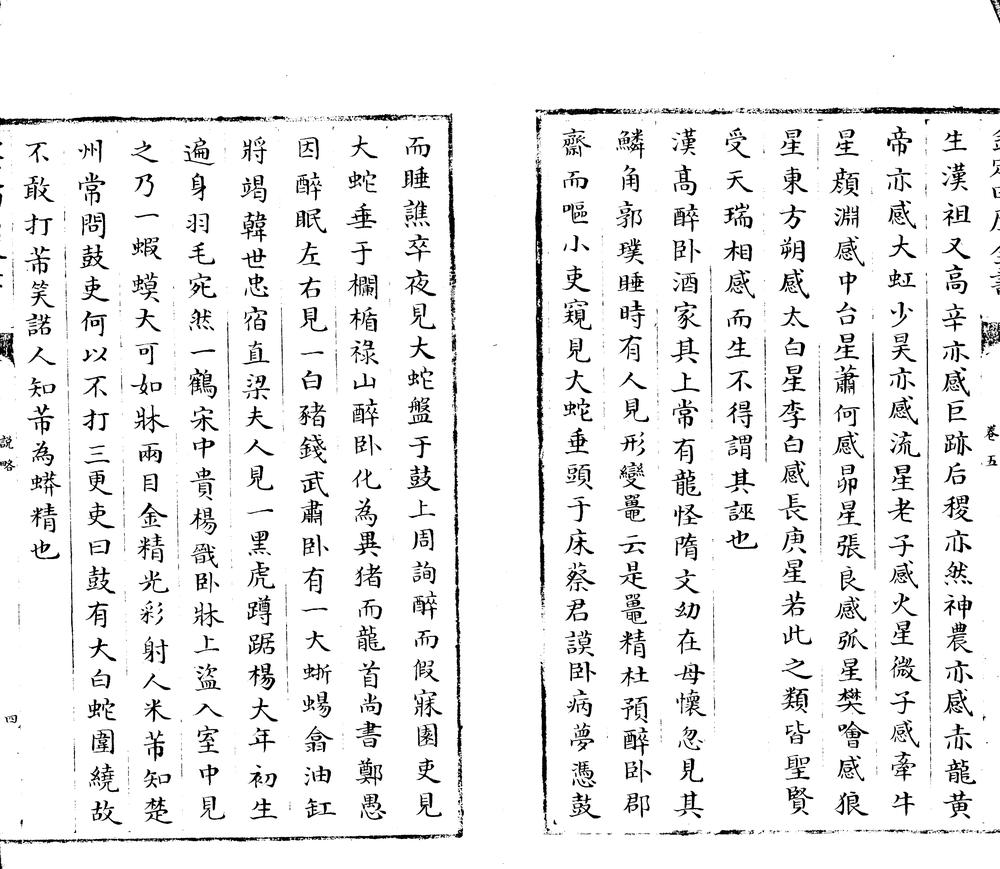 生漢祖又高辛亦感巨跡后稷亦然神農亦感赤龍黄
帝亦感大虹少昊亦感流星老子感火星微子感牽牛
星顔淵感中台星蕭何感昴星張良感弧星樊噲感狼
星東方朔感太白星李白感長庚星若此之類皆聖賢
受天瑞相感而生不得謂其誣也
漢髙醉卧酒家其上常有龍怪隋文幼在母懷忽見其
鱗角郭璞睡時有人見形變鼍云是鼍精杜預醉卧郡
齋而嘔小吏窺見大蛇垂頭于床蔡君謨卧病夢憑鼓
而睡譙卒夜見大蛇盤于鼓上周詢醉而假寐園吏見
大蛇垂于欄楯祿山醉卧化為異猪而龍首尚書鄭愚
因醉眠左右見一白豬錢武肅卧有一大蜥蜴翕油缸
將竭韓世忠宿直梁夫人見一黑虎蹲踞楊大年初生
遍身羽毛宛然一鶴宋中貴楊戩卧牀上盜入室中見
之乃一蝦蟆大可如牀兩目金精光彩射人米芾知楚
州常問鼓吏何以不打三更吏曰鼓有大白蛇圍繞故
不敢打芾笑諾人知芾為蟒精也
卷五
說略
四